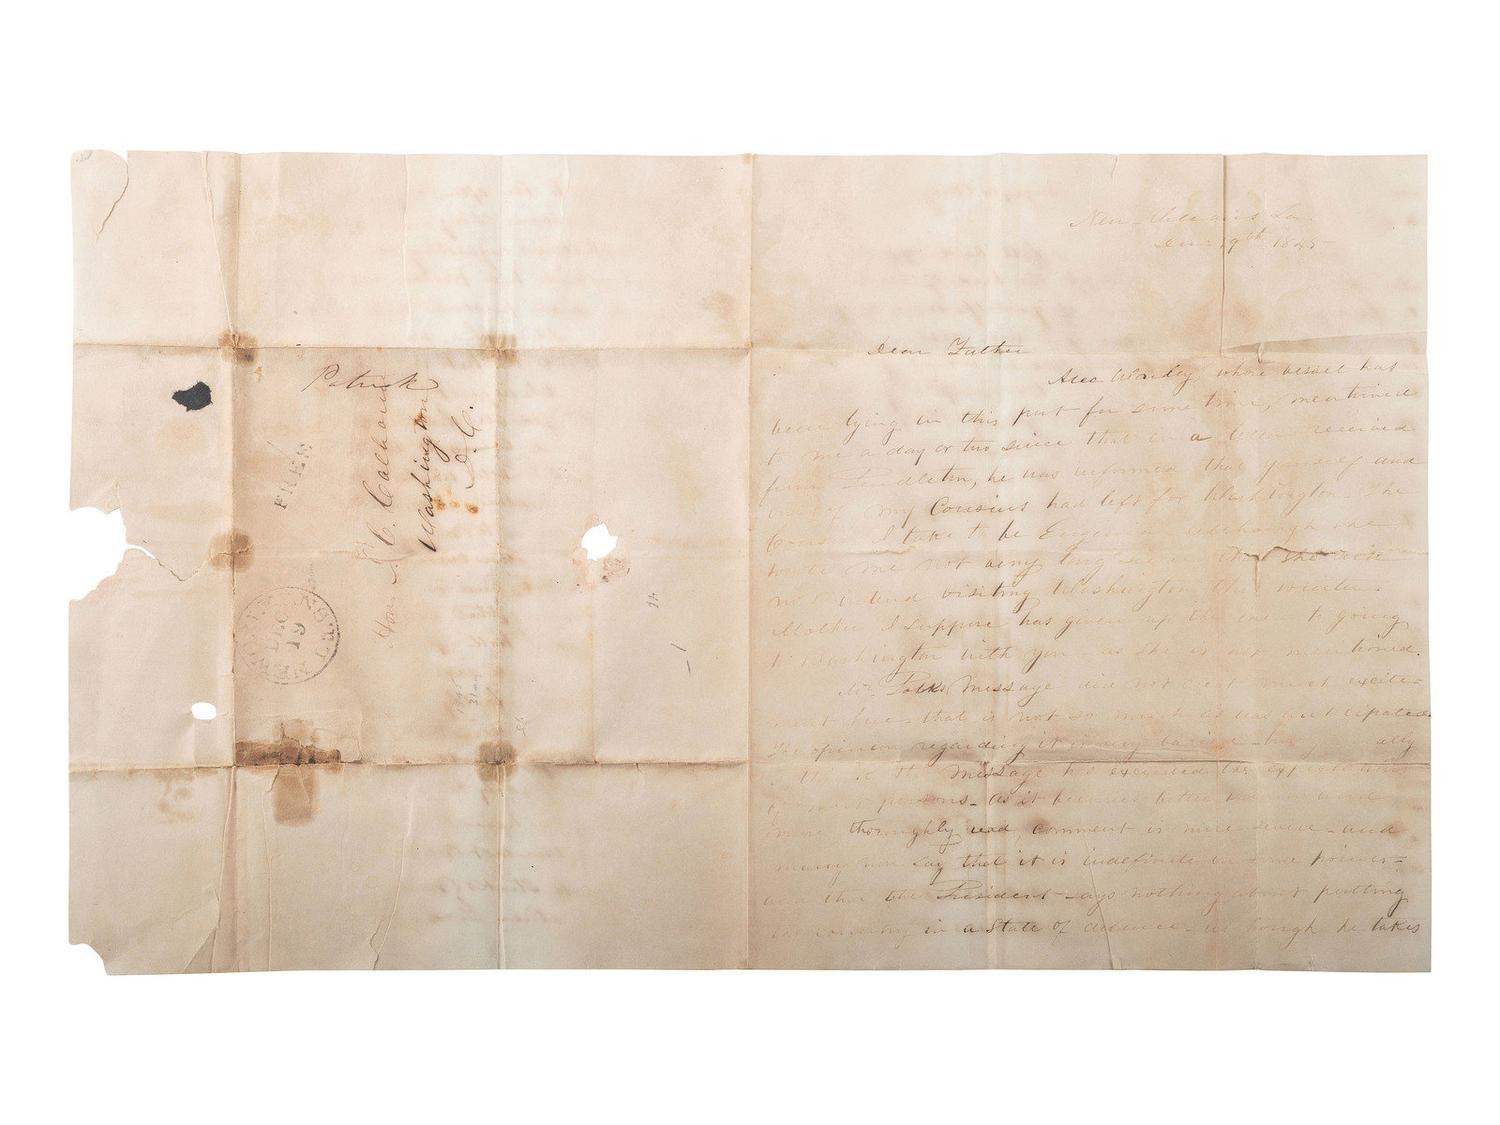 Patrick
FREE
Hon. J. C. Calhoun
Washington
D. C.
DEC
19
La.
14
New-Orleans La
Dec 19th 1845
Dear Father
whose vessel has
been lying in this port for some time, mentioned
to me a day or two since that in a letter received
from Pendleton, he was informed that yourself and
one of my Cousins had left for Washington. The
I take to be Eugenia although she
wrote me not very long since that she did
not intend visiting Washington this winter.
Mother I suppose has given up the idea to going
to Washington with you as she is not mentioned.
Mr Polks Message did not create much excite-
ment here - that is not so much as was anticipated
The opinion regarding it
the Message has exceeded the expectation
of most persons - as it becomes better and
more thoroughly read, comment is more severe - and
many now say that it is indefinite on some points -
and that the President says nothing about putting
the Country in a State of defence - although he takes